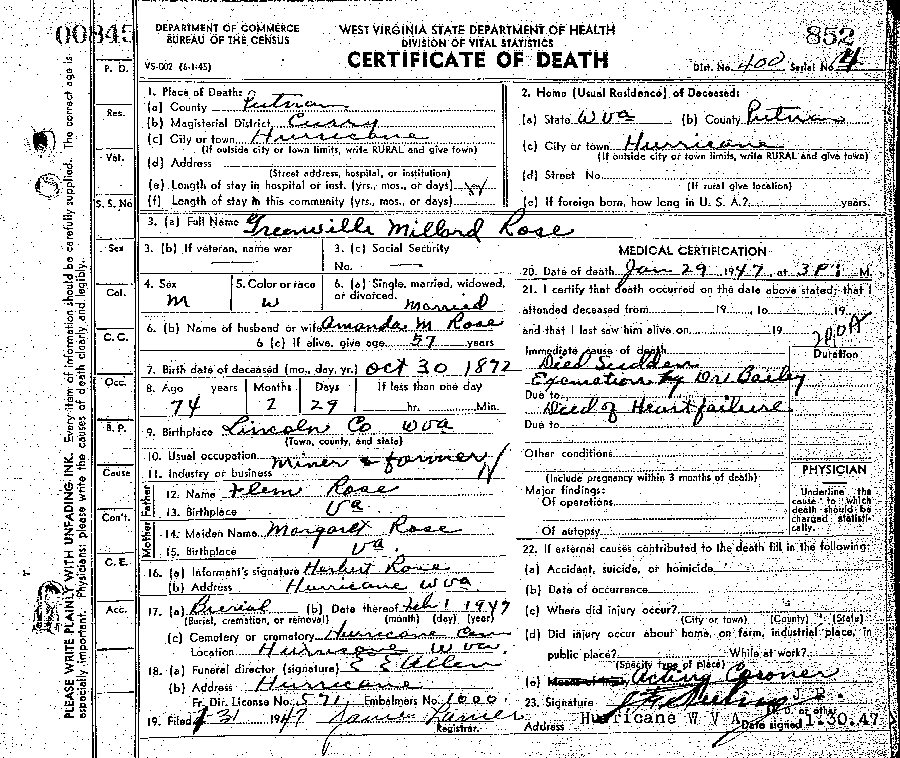 00845
DEPARTMENT OF COMMERCE
BUREAU OF THE CENSUS
WEST VIRGINIA STATE DEPARTMENT OF HEALTH
DIVISION OF VITAL STATISTICS
CERTIFICATE OF DEATH
852
VS-002 (6-1-45)
Dist. No. 400 Serial No. 4
PLEASE WRITE PLAINLY WITH UNFADING INK. Every item of information should be carefully supplied. The correct age is
especially important. Physicians: please write the causes of death clearly and legibly.
P. D.
Res.
Vet.
S. S. No
Sex
Col.
C. C.
Occ.
B. P.
Cause
Con't.
C. E.
Acc.
1. Place of Death:
(a) County Putnam
(b) Magisterial District Curry
(c) City or town Hurricane
(If outside city or town limits, write RURAL and give town)
(d) Address
(Street address, hospital, or institution)
(e) Length of stay in hospital or inst. (yrs., mos., or days)
(f) Length of stay in this community (yrs., mos., or days)
2. Home (Usual Residence) of Deceased:
(a) State W Va (b) County Putnam
(c) City or town Hurricane
(If outside city or town limits, write RURAL and give town)
(d) Street No.
(If rural give location)
(e) If foreign born, how long in U. S. A.? years.
3. (a) Full Name Greenville Millard Rose
3. (b) If veteran, name war
3. (c) Social Security
No.
4. Sex
M
5. Color or race
W
6. (a) Single, married, widowed,
or divorced.
Married
6. (b) Name of husband or wife Amanda M Rose
6 (c) If alive, give age 57 years
7. Birth date of deceased (mo., day, yr.) Oct 30 1872
8. Age years Months Days If less than one day
74 2 29 hr. Min.
9. Birthplace Lincoln Co W Va
(Town, county, and state)
10. Usual occupation Miner & farmer
11. Industry or business
Father
12. Name Flem Rose
13. Birthplace Va
Mother
14. Maiden Name Margaret Rose
15. Birthplace Va.
16. (a) Informant's signature Herbert Rose
(b) Address Hurricane W Va
17. (a) Bureial (b) Date thereof Feb 1 1947
(Burial, cremation, or removal) (month) (day) (year)
(c) Cemetery or crematory Hurricane Cem
Location Hurricane W Va.
18. (a) Funeral director (signature) E E Allen
(b) Address Hurricane
Fr. Dir. License No. 571 Embalmers No. 1000
19. Filed 1-31 1947 James Lanier
Registrar.
MEDICAL CERTIFICATION
20. Date of death Jan 29 1947, at 3 P: M.
21. I certify that death occurred on the date above stated; that I
attended deceased from 19 , to 19
and that I last saw him alive on 19
Duration
Immediate cause of death
Died Sudden
Examation by Dr. Bailey
Due to
Died of Heart failure
Due to
Other conditions
(Include pregnancy within 3 months of death)
Major findings:
Of operations
Of autopsy
PHYSICIAN
Underline the
cause to which
death should be
charged statisti-
cally.
22. If external causes contributed to the death fill in the following:
(a) Accident, suicide, or homicide
(b) Date of occurrence
(c) Where did injury occur?
(City or town) (County) (State)
(d) Did injury occur about home, on farm, industrial place, in
public place? While at work?
(Specify type of place)
(e) Acting Coroner
23. Signature J.P.
M. D. or other
Address Hurricane W V A Date signed 1-30.47